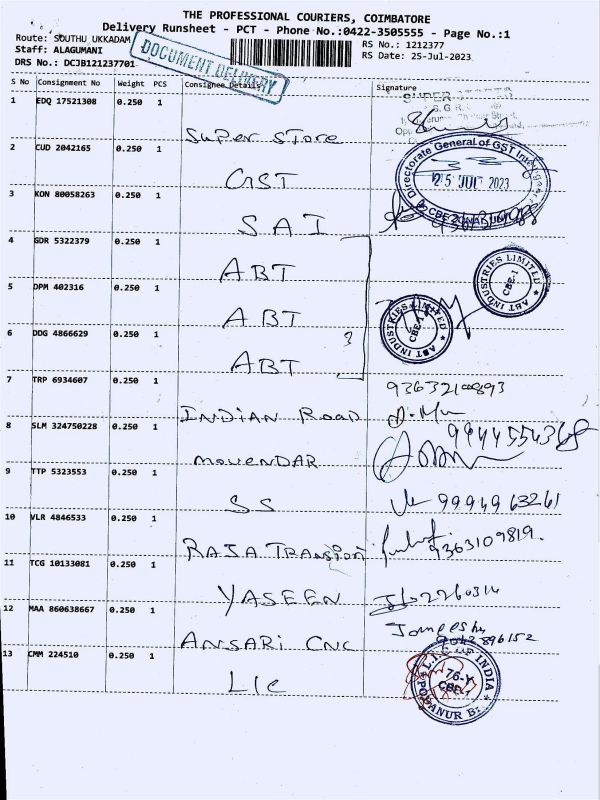 THE PROFESSIONAL COURIERS, COIMBATORE
Delivery Runsheet - PCT - Phone No.:0422-3505555 - Page No.:1
Route: SOUTHU UKKADAM
RS No.: 1212377
Staff: ALAGUMANI
RS Date: 25-Jul-2023
DRS No.: DCJB121237701
DOCUMENT DELIVERY
S No Consignment No Weight PCS Consignee Details Signature
1 EDQ 17521308 0.250 1
Super Store
2 CUD 2042165 0.250 1
GST
Directorate General of GST
25 JUL 2023
3 KON 80058263 0.250 1
SAI
4 GDR 5322379 0.250 1
ABT
ABT INDUSTRIES LIMITED
CBE-1
5 DPM 402316 0.250 1
ABT
ABT INDUSTRIES LIMITED
CBE-1
6 DDG 4866629 0.250 1
ABT
3
7 TRP 6934607 0.250 1
INDIAN Road
9363210893
8 SLM 324750228 0.250 1
MOVENDAR
9944554368
9 TTP 5323553 0.250 1
SS
9994963261
10 VLR 4846533 0.250 1
RAJA TRANSPORT
9363109819.
11 TCG 10133081 0.250 1
YASEEN
12 MAA 860638667 0.250 1
ANSARI CNC
9042896152
13 CMM 224510 0.250 1
LIC
L.I.C. OF INDIA
CBE-1